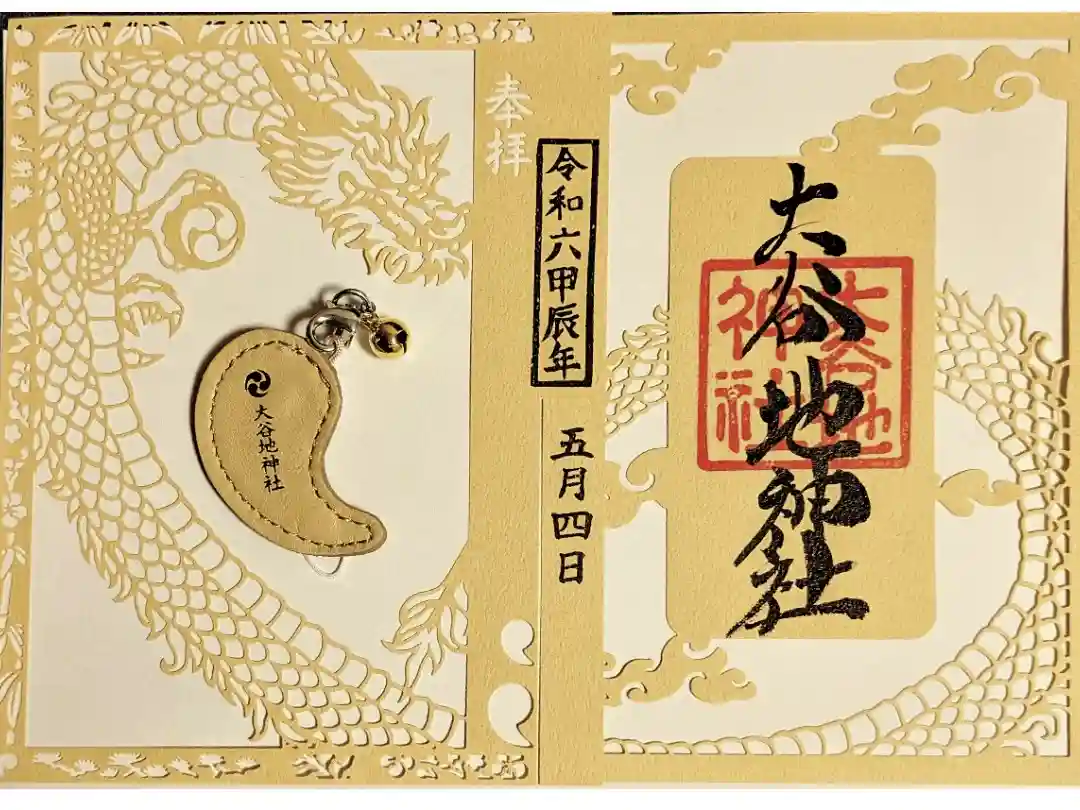 大谷地神社
大谷地
神社
令和六甲辰年
五月四日
奉拝
大谷地神社